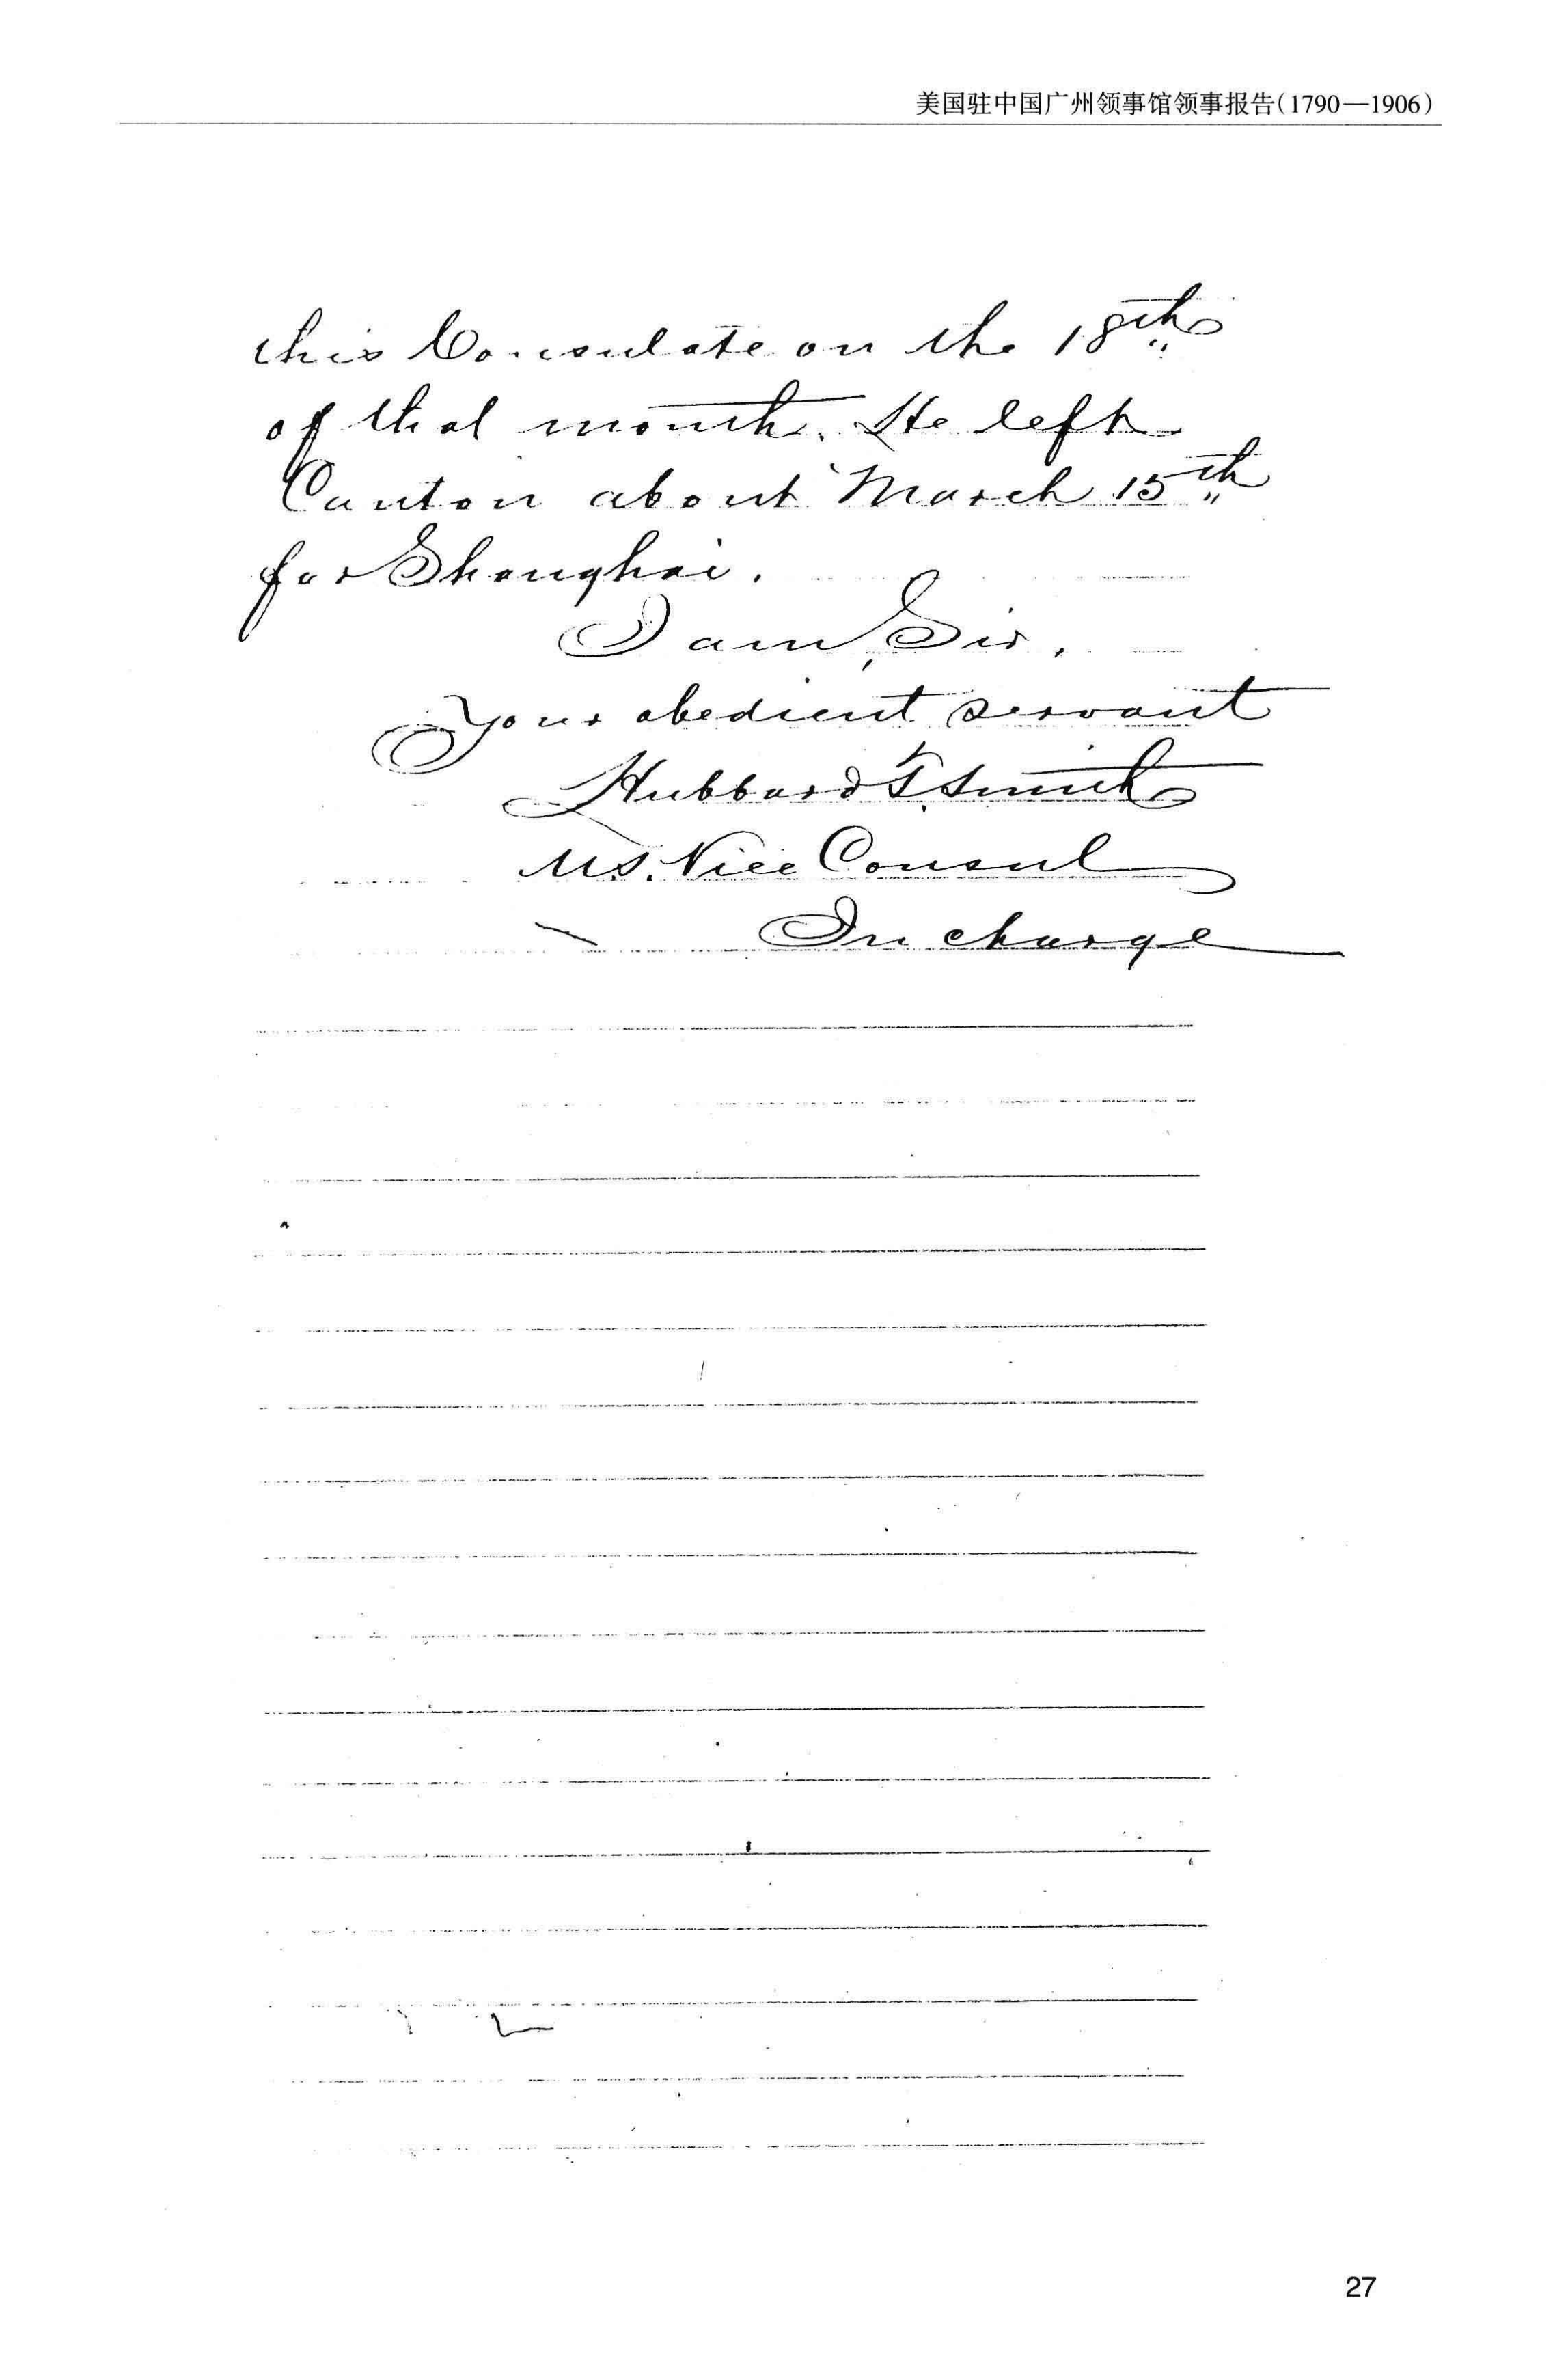 美国驻中国广州领事馆领事报告(1790—1906)
this Consulate on the 18th
of that month. He left
Canton about March 15th
for Shanghai.
I am, Sir,
Your obedient servant
Hubbard T. Smith
U.S. Vice Consul
In charge
27